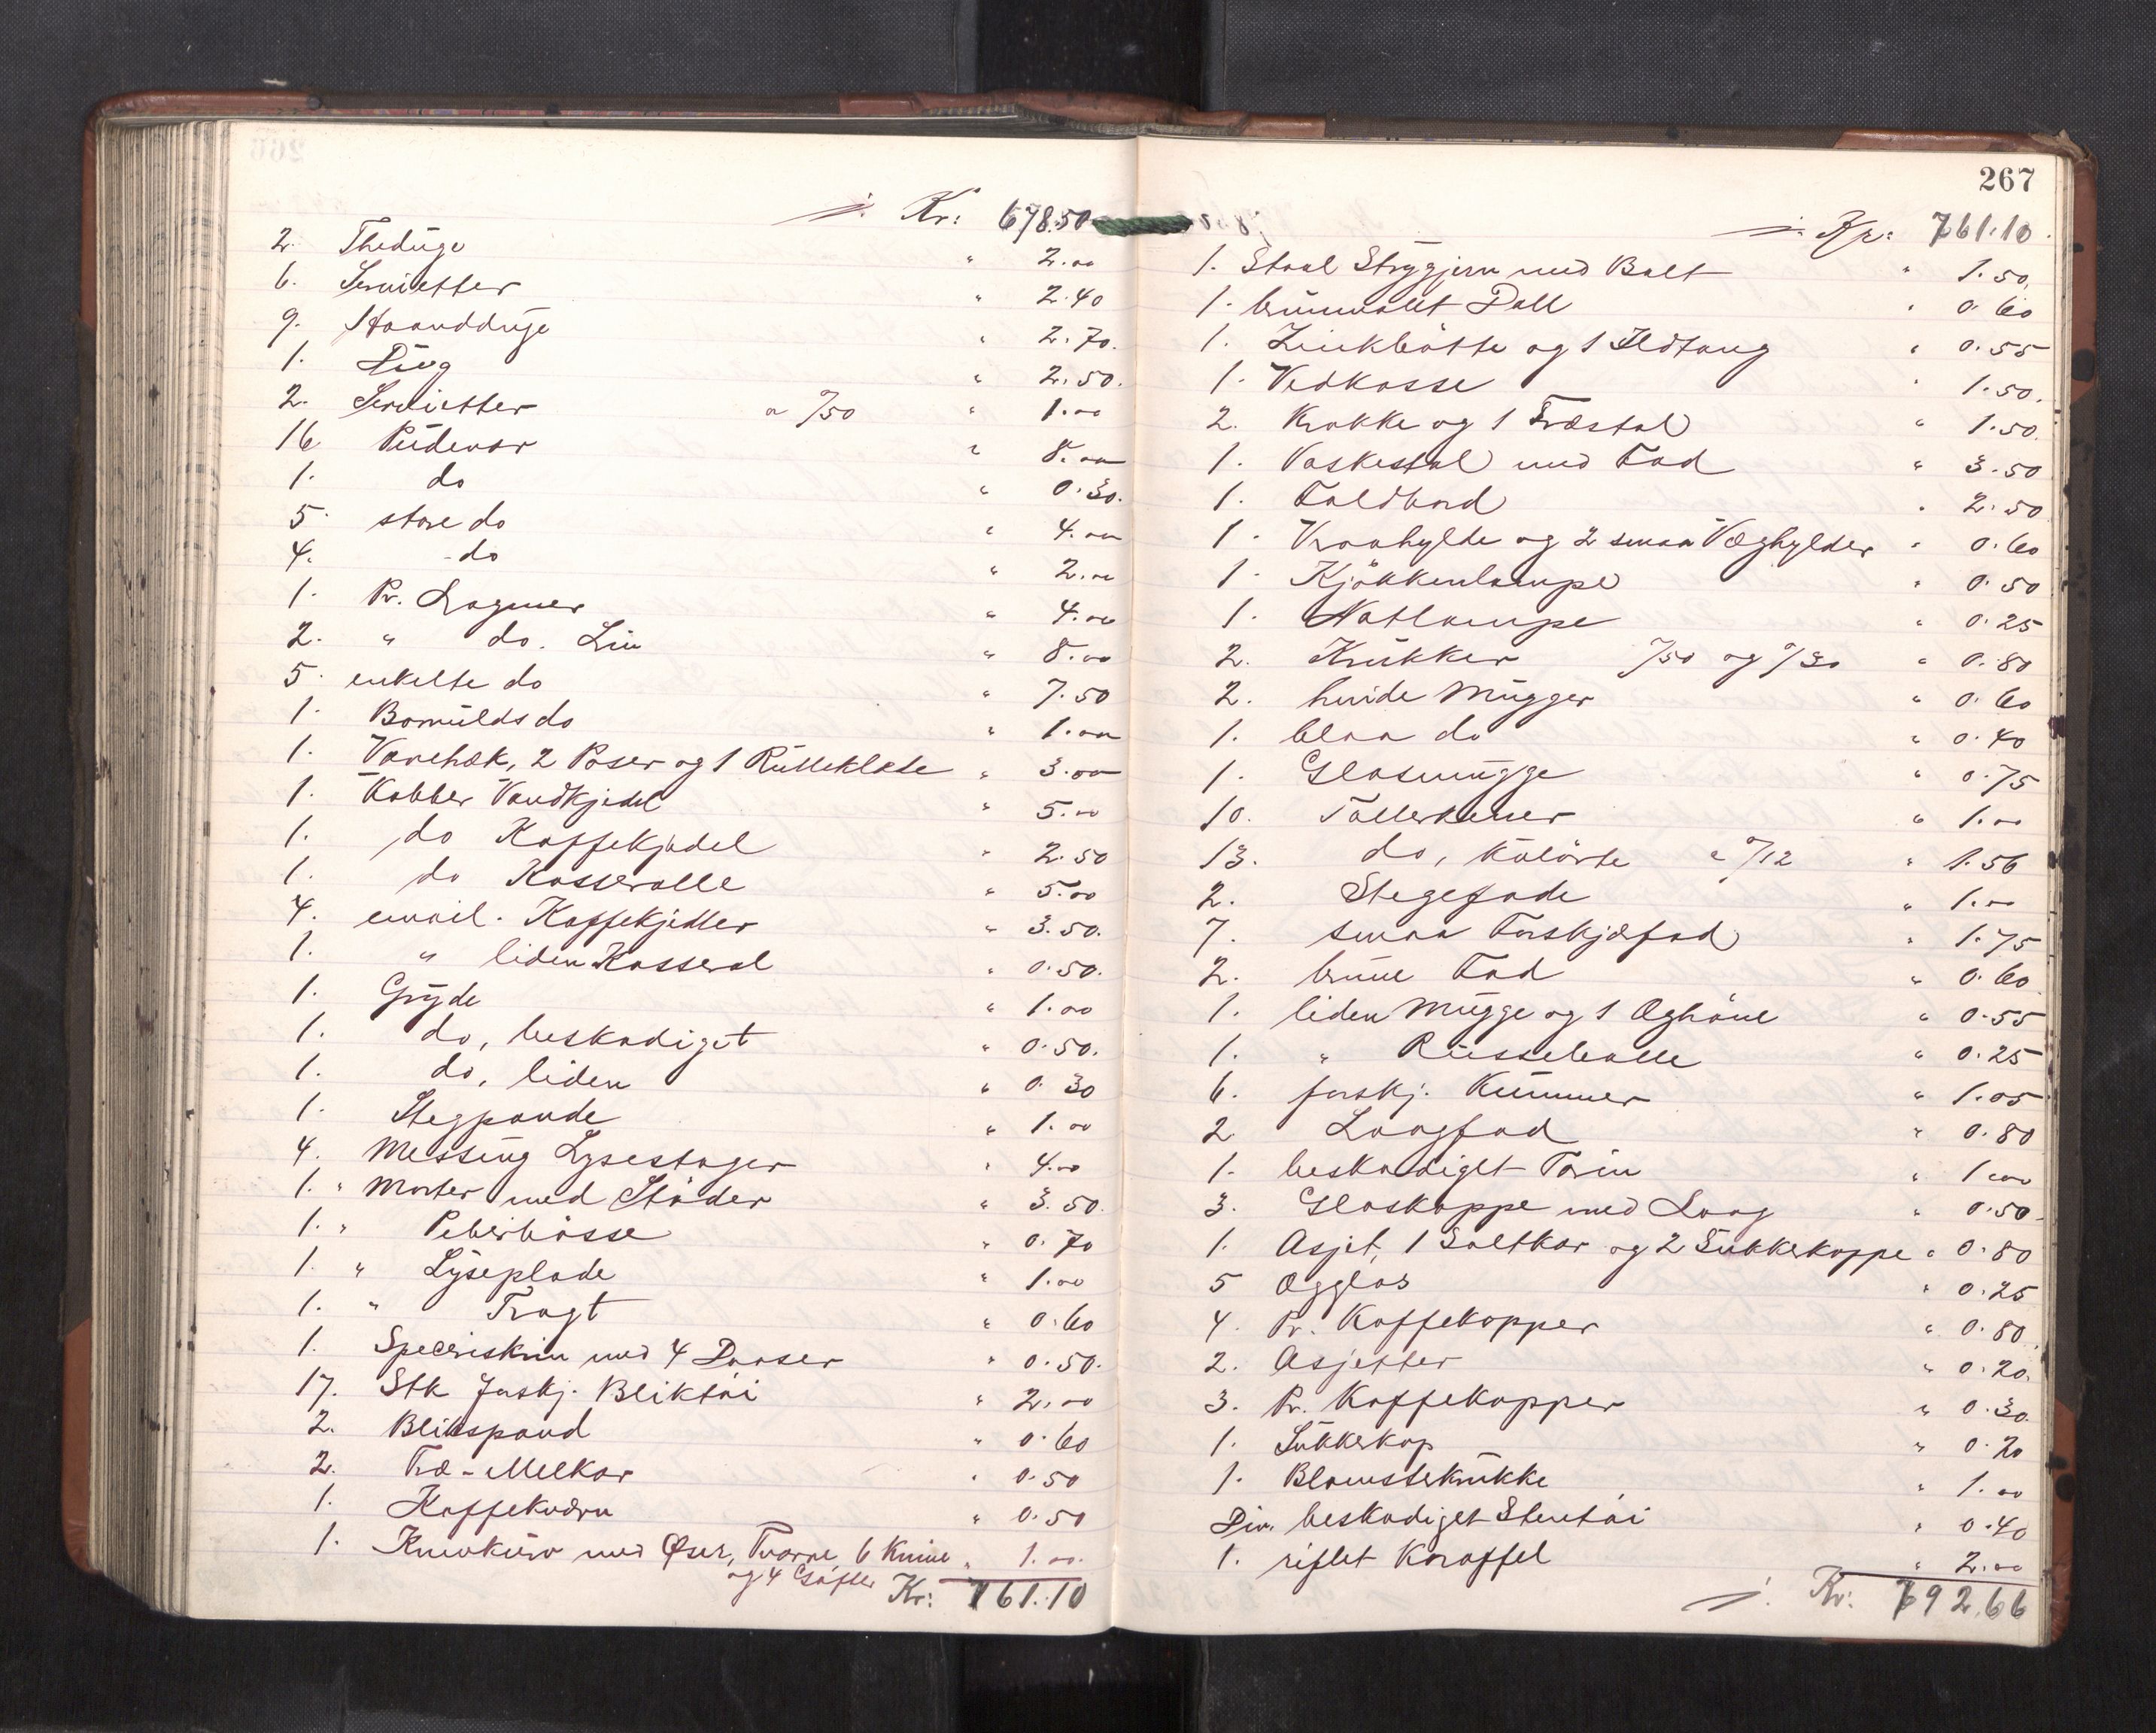 Kr: 678.50
2. Theduge " 2.00
6. Servietter " 2.40
9. Haandduge " 2.70.
1. Dug " 2.50.
2. Servietter a %50 " 1.00
16 Pudevar " 8.00
1. do " 0.30.
5. store do " 4.00
4. - do " 2.00
1. Pr. Lagner " 4.00
2. " do. Lin " 8.00
5. enkelte do " 7.50
1. Bomulds do " 1.00
1. Varehæk, 2 Poser og 1 Rulleklæde " 3.00
1. Kobber Vandkjedel " 5.00
1. do Kaffekjedel " 2.50
1. do Kasserolle " 5.00
4. email. Kaffekjedler " 3.50.
1. " liden Kasserol " 0.50.
1. Gryde " 1.00
1. do, beskadiget " 0.50.
1. do, liden " 0.30
1. Stegpande " 1.00
4. Messing Lysestager " 4.00
1. " Morter med Støder " 3.50.
1. " Peberbøsse " 0.70
1. " Lyseplade " 1.00
1. " Tragt " 0.60
1. Speceriskrin med 4 Daaser " 0.50.
17. Stk forskj. Bliktøi " 2.00
2. Blikspand " 0.60
2. Træ-Melkar " 0.50
1. Kaffekværn " 0.50
1. Knivkurv med Øser, Tvarre, 6 Knive " 1.00.
og 4 Gafler Kr: 761.10
267
Kr: 761.10.
1. Staal Strygjern med Bolt " 1.50.
1. brunmalet Dall " 0.60
1. Zinkbøtte og 1 Ildtang " 0.55
1. Vedkasse " 1.50.
2. Krakke og 1 Træstol " 1.50.
1. Vaskestol med Fad " 3.50
1. Foldbord " 2.50
1. Vraahylde og 2 smaa Væghylder " 0.60
1. Kjøkkenlampe " 0.50
1. Natlampe " 0.25
2. Krukker %50 og %30 " 0.80
2. hvide Mugger " 0.60
1. blaa do " 0.40
1. Glasmugge " 0.75
10. Tallerkener " 1.00
13. do, kulørte a %12 " 1.56
2. Stegefade " 1.00
7. smaa Forskjæfad " 1.75
2. brune Fad " 0.60
1. liden Mugge og 1 Æghøne " 0.55
1. " Russebolle " 0.25
6. forskj. Kummer " 1.05
2. Laagfad " 0.80
1. beskadiget Terin " 1.00
3. Glaskoppe med Laag " 0.50
1. Asjet, 1 Saltkar og 2 Sukkerkoppe " 0.80
5 Ægglas " 0.25
4. Pr. Kaffekopper " 0.80
2. Asjetter " 0.20.
3. Pr. Kaffekopper " 0.30.
1. Sukkerkop " 0.20
1. Blomsterkrukke " 1.00
Div. beskadiget Stentøi " 0.40
1. riflet Karaffel " 2.00
Kr: 792.66